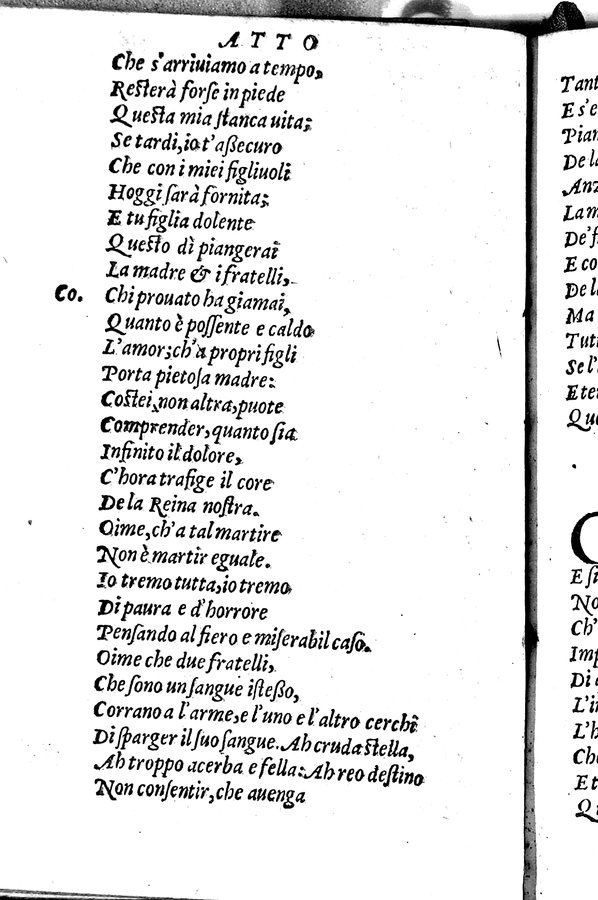 ATTO
Che s'arriuiamo a tempo,
Resterà forſe in piede
Questa mia ſtanca uita;
Se tardi, io t'aßecuro
Che con i miei figliuoli
Hoggi ſarà fornita;
E tu figlia dolente
Questo dì piangerai
La madre & i fratelli,
Co. Chi prouato ha giamai,
Quanto è poſſente e caldo
L'amor; ch'a propri figli
Porta pietoſa madre:
Costei, non altra, puote
Comprender, quanto ſia
Infinito il dolore,
C'hora trafige il core
De la Reina noſtra.
Oime, ch'a tal martire
Non è martir eguale.
Io tremo tutta, io tremo
Di paura e d'horrore
Penſando al fiero e miſerabil caſo.
Oime che due fratelli,
Che ſono un ſangue iſteßo,
Corrano a l'arme, e l'uno e l'altro cerchi
Di ſparger il ſuo ſangue. Ah cruda ſtella,
Ah troppo acerba e fella: Ah reo deſtino
Non conſentir, che auenga
Tant
E s'e
Pian
De la
Anz
La m
De' f
E co
De la
Ma
Tutt
Se l'
Eter
Que
C
E ſi
No
Ch'
Imp
Di
L'i
L'h
Che
Et
Qu